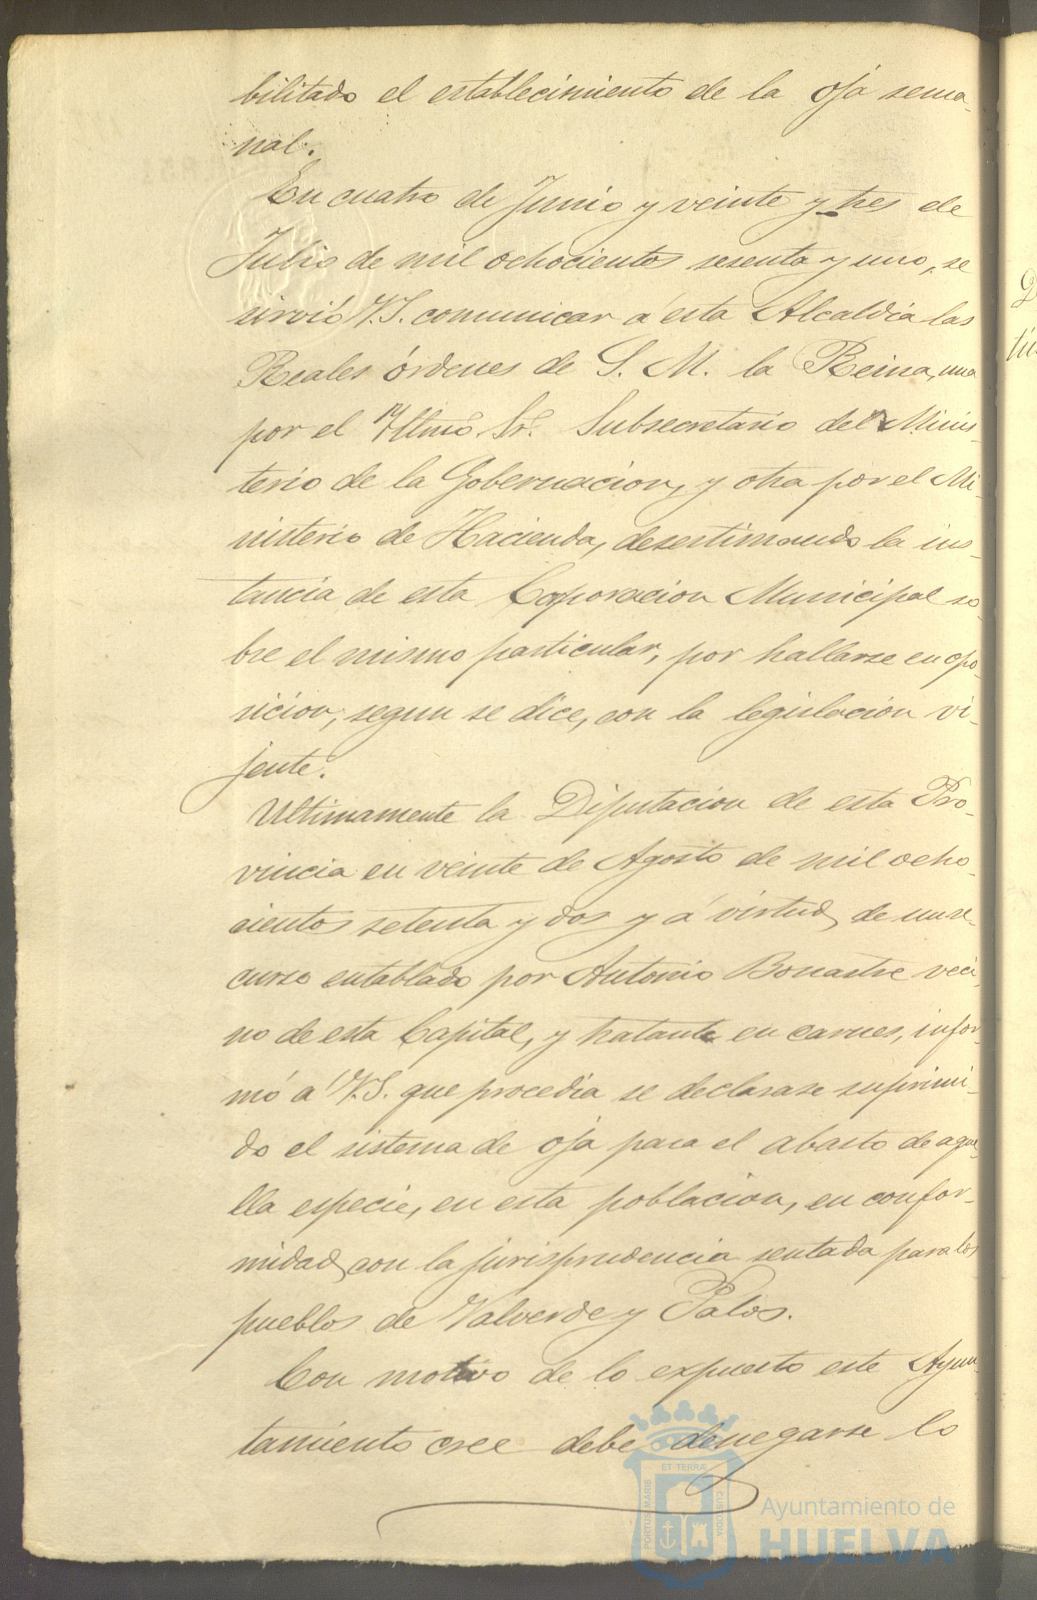 bilitado el establecimiento de la oja sema-
nal.
En cuatro de Junio y veinte y tres de
Julio de mil ochocientos sesenta y uno, se
sirvió V.S. comunicar á esta Alcaldia las
Reales órdenes de S. M. la Reina, una
por el Yltmo. Sr. Subsecretario del Minis-
terio de la Gobernacion, y otra por el Mi-
nisterio de Hacienda, desestimando la ins-
tancia de esta Corporacion Municipal so-
bre el mismo particular, por hallarse en opo-
sicion, segun se dice, con la legislacion vi-
jente.
Ultimamente la Diputacion de esta Pro-
vincia en veinte de Agosto de mil ocho-
cientos setenta y dos y á virtud de un re-
curso entablado por Antonio Bonastre veci-
no de esta Capital, y tratante en carnes, infor-
mó á V.S. que procedia se declarase suprimi-
do el sistema de oja para el abasto de aque-
lla especie, en esta poblacion, en confor-
midad con la jurisprudencia sentada para los
pueblos de Valverde y Palos.
Con motivo de lo expuesto este Ayun-
tamiento cree debe denegarse lo
PORTUS MARIS ET TERRÆ CUSTODIA
Ayuntamiento de
HUELVA